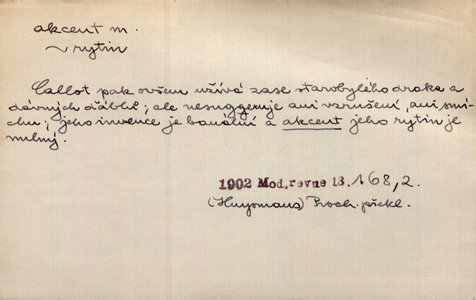 akcent m.
~ rytin
Callot pak ovšem užívá zase starobylého draka a
dávných ďáblů; ale nesuggeruje ani vzrušení, ani smí-
chu; jeho invence je banální a akcent jeho rytin je
mdlý.
1902 Mod. revue 13. 168, 2.
(Huysmans) Proch. překl.